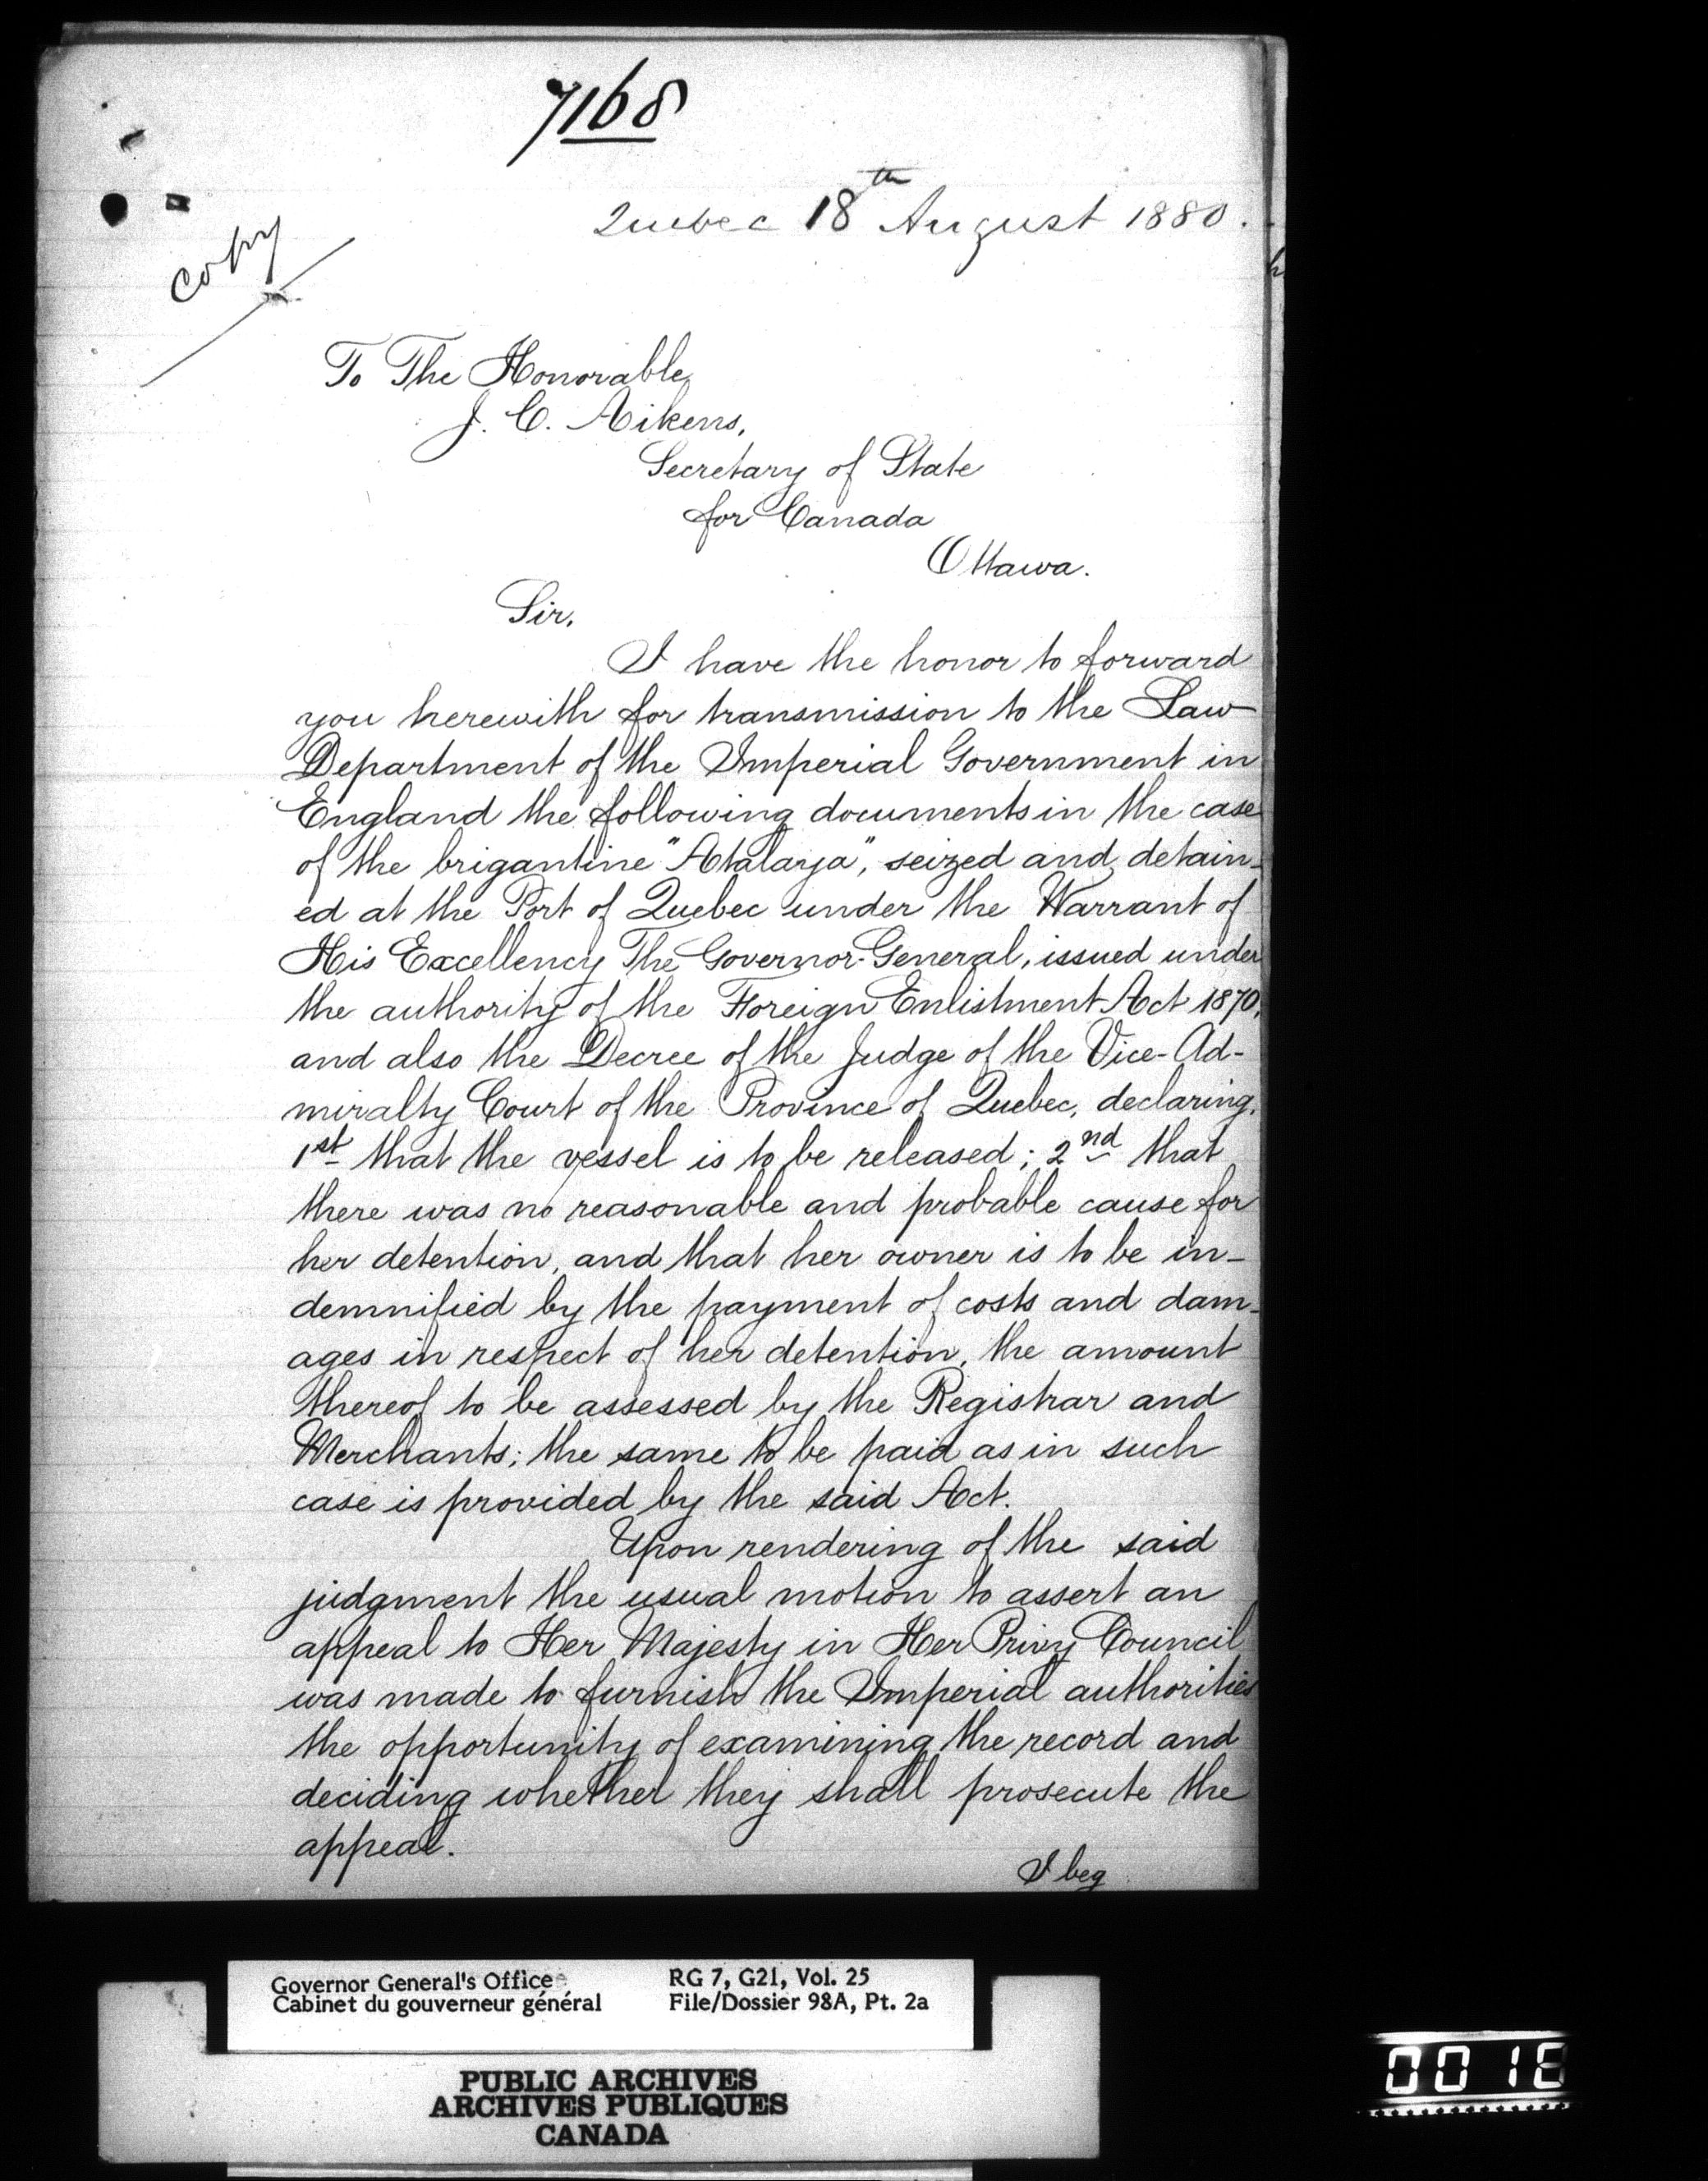 7168
Quebec 18th August 1880.
Copy
To The Honorable
J. C. Aikens,
Secretary of State
for Canada
Ottawa.
Sir,
I have the honor to forward
you herewith for transmission to the Law
Department of the Imperial Government in
England the following documents in the case
of the brigantine "Atalaya", seized and detain-
ed at the Port of Quebec under the Warrant of
His Excellency The Governor-General, issued under
the authority of the Foreign Enlistment Act 1870,
and also the Decree of the Judge of the Vice-Ad-
miralty Court of the Province of Quebec, declaring,
1st that the vessel is to be released; 2nd that
there was no reasonable and probable cause for
her detention, and that her owner is to be in-
demnified by the payment of costs and dam-
ages in respect of her detention, the amount
thereof to be assessed by the Registrar and
Merchants; the same to be paid as in such
case is provided by the said Act.
Upon rendering of the said
judgment the usual motion to assert an
appeal to Her Majesty in Her Privy Council
was made to furnish the Imperial authorities
the opportunity of examining the record and
deciding whether they shall prosecute the
appeal.
I beg
Governor General's Office RG 7, G21, Vol. 25
Cabinet du gouverneur général File/Dossier 98A, Pt. 2a
PUBLIC ARCHIVES
ARCHIVES PUBLIQUES
CANADA